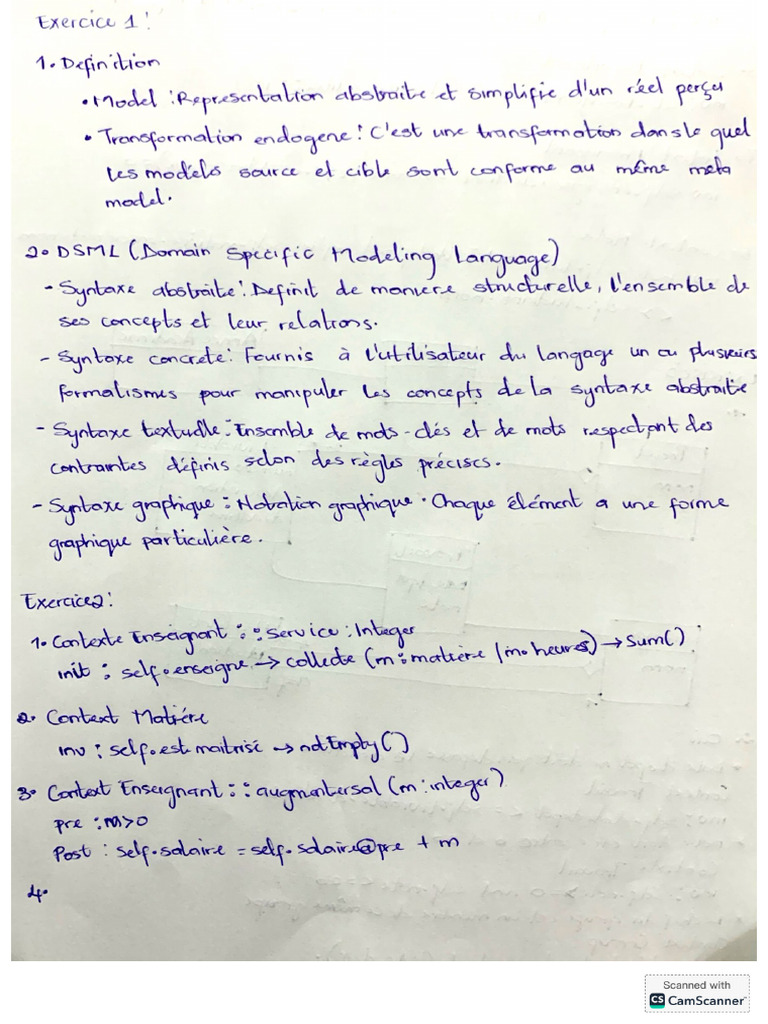 Exercice 1 :
1. Definition
• Model : Representation abstraite et simplifie d'un réel perçu
• Transformation endogene : C'est une transformation dans le quel
les models source et cible sont conforme au même meta
model.
2. DSML (Domain Specific Modeling Language)
- Syntaxe abstraite : Definit de maniere structurelle, l'ensemble de
ses concepts et leur relations.
- Syntaxe concrete : Fournis à l'utilisateur du langage un ou plusieurs
formalismes pour manipuler les concepts de la syntaxe abstraite
- Syntaxe textuelle : Ensemble de mots-clés et de mots respectant des
contraintes définis selon des règles précises.
- Syntaxe graphique : Notation graphique. Chaque élément a une forme
graphique particulière.
Exercice2 :
1. Contexte Enseignant :: service : Integer
init : self.enseigne → collecte (m : matière / m.heures) → Sum()
2. Context Matière
inv : self.est maitrisé → notEmpty()
3. Context Enseignant :: augmentersal (m : integer)
pre : m>0
Post : self.salaire = self.salaire@pre + m
4.
Scanned with
CS CamScanner